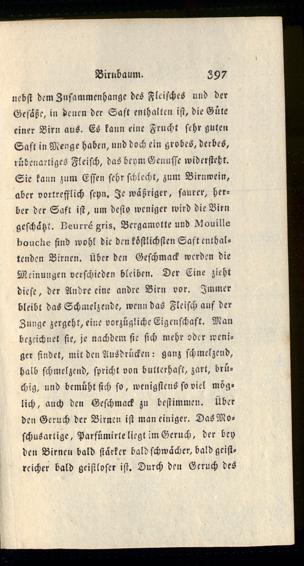 Birnbaum. 397
nebst dem Zusammenhange des Fleisches und der
Gefäße, in denen der Saft enthalten ist, die Güte
einer Birn aus. Es kann eine Frucht sehr guten
Saft in Menge haben, und doch ein grobes, derbes,
rübenartiges Fleisch, das beym Genusse widersteht.
Sie kann zum Essen sehr schlecht, zum Birnwein,
aber vortrefflich seyn. Je wäßriger, saurer, her-
ber der Saft ist, um desto weniger wird die Birn
geschätzt. Beurré gris, Bergamotte und Mouille
bouche sind wohl die den köstlichsten Saft enthal-
tenden Birnen. Über den Geschmack werden die
Meinungen verschieden bleiben. Der Eine zieht
diese, der Andre eine andre Birn vor. Immer
bleibt das Schmelzende, wenn das Fleisch auf der
Zunge zergeht, eine vorzügliche Eigenschaft. Man
bezeichnet sie, je nachdem sie sich mehr oder weni-
ger findet, mit den Ausdrücken: ganz schmelzend,
halb schmelzend, spricht von butterhaft, zart, brü-
chig, und bemüht sich so, wenigstens so viel mög-
lich, auch den Geschmack zu bestimmen. Über
den Geruch der Birnen ist man einiger. Das Mo-
schusartige, Parfümirte liegt im Geruch, der bey
den Birnen bald stärker bald schwächer, bald geist-
reicher bald geistloser ist. Durch den Geruch des